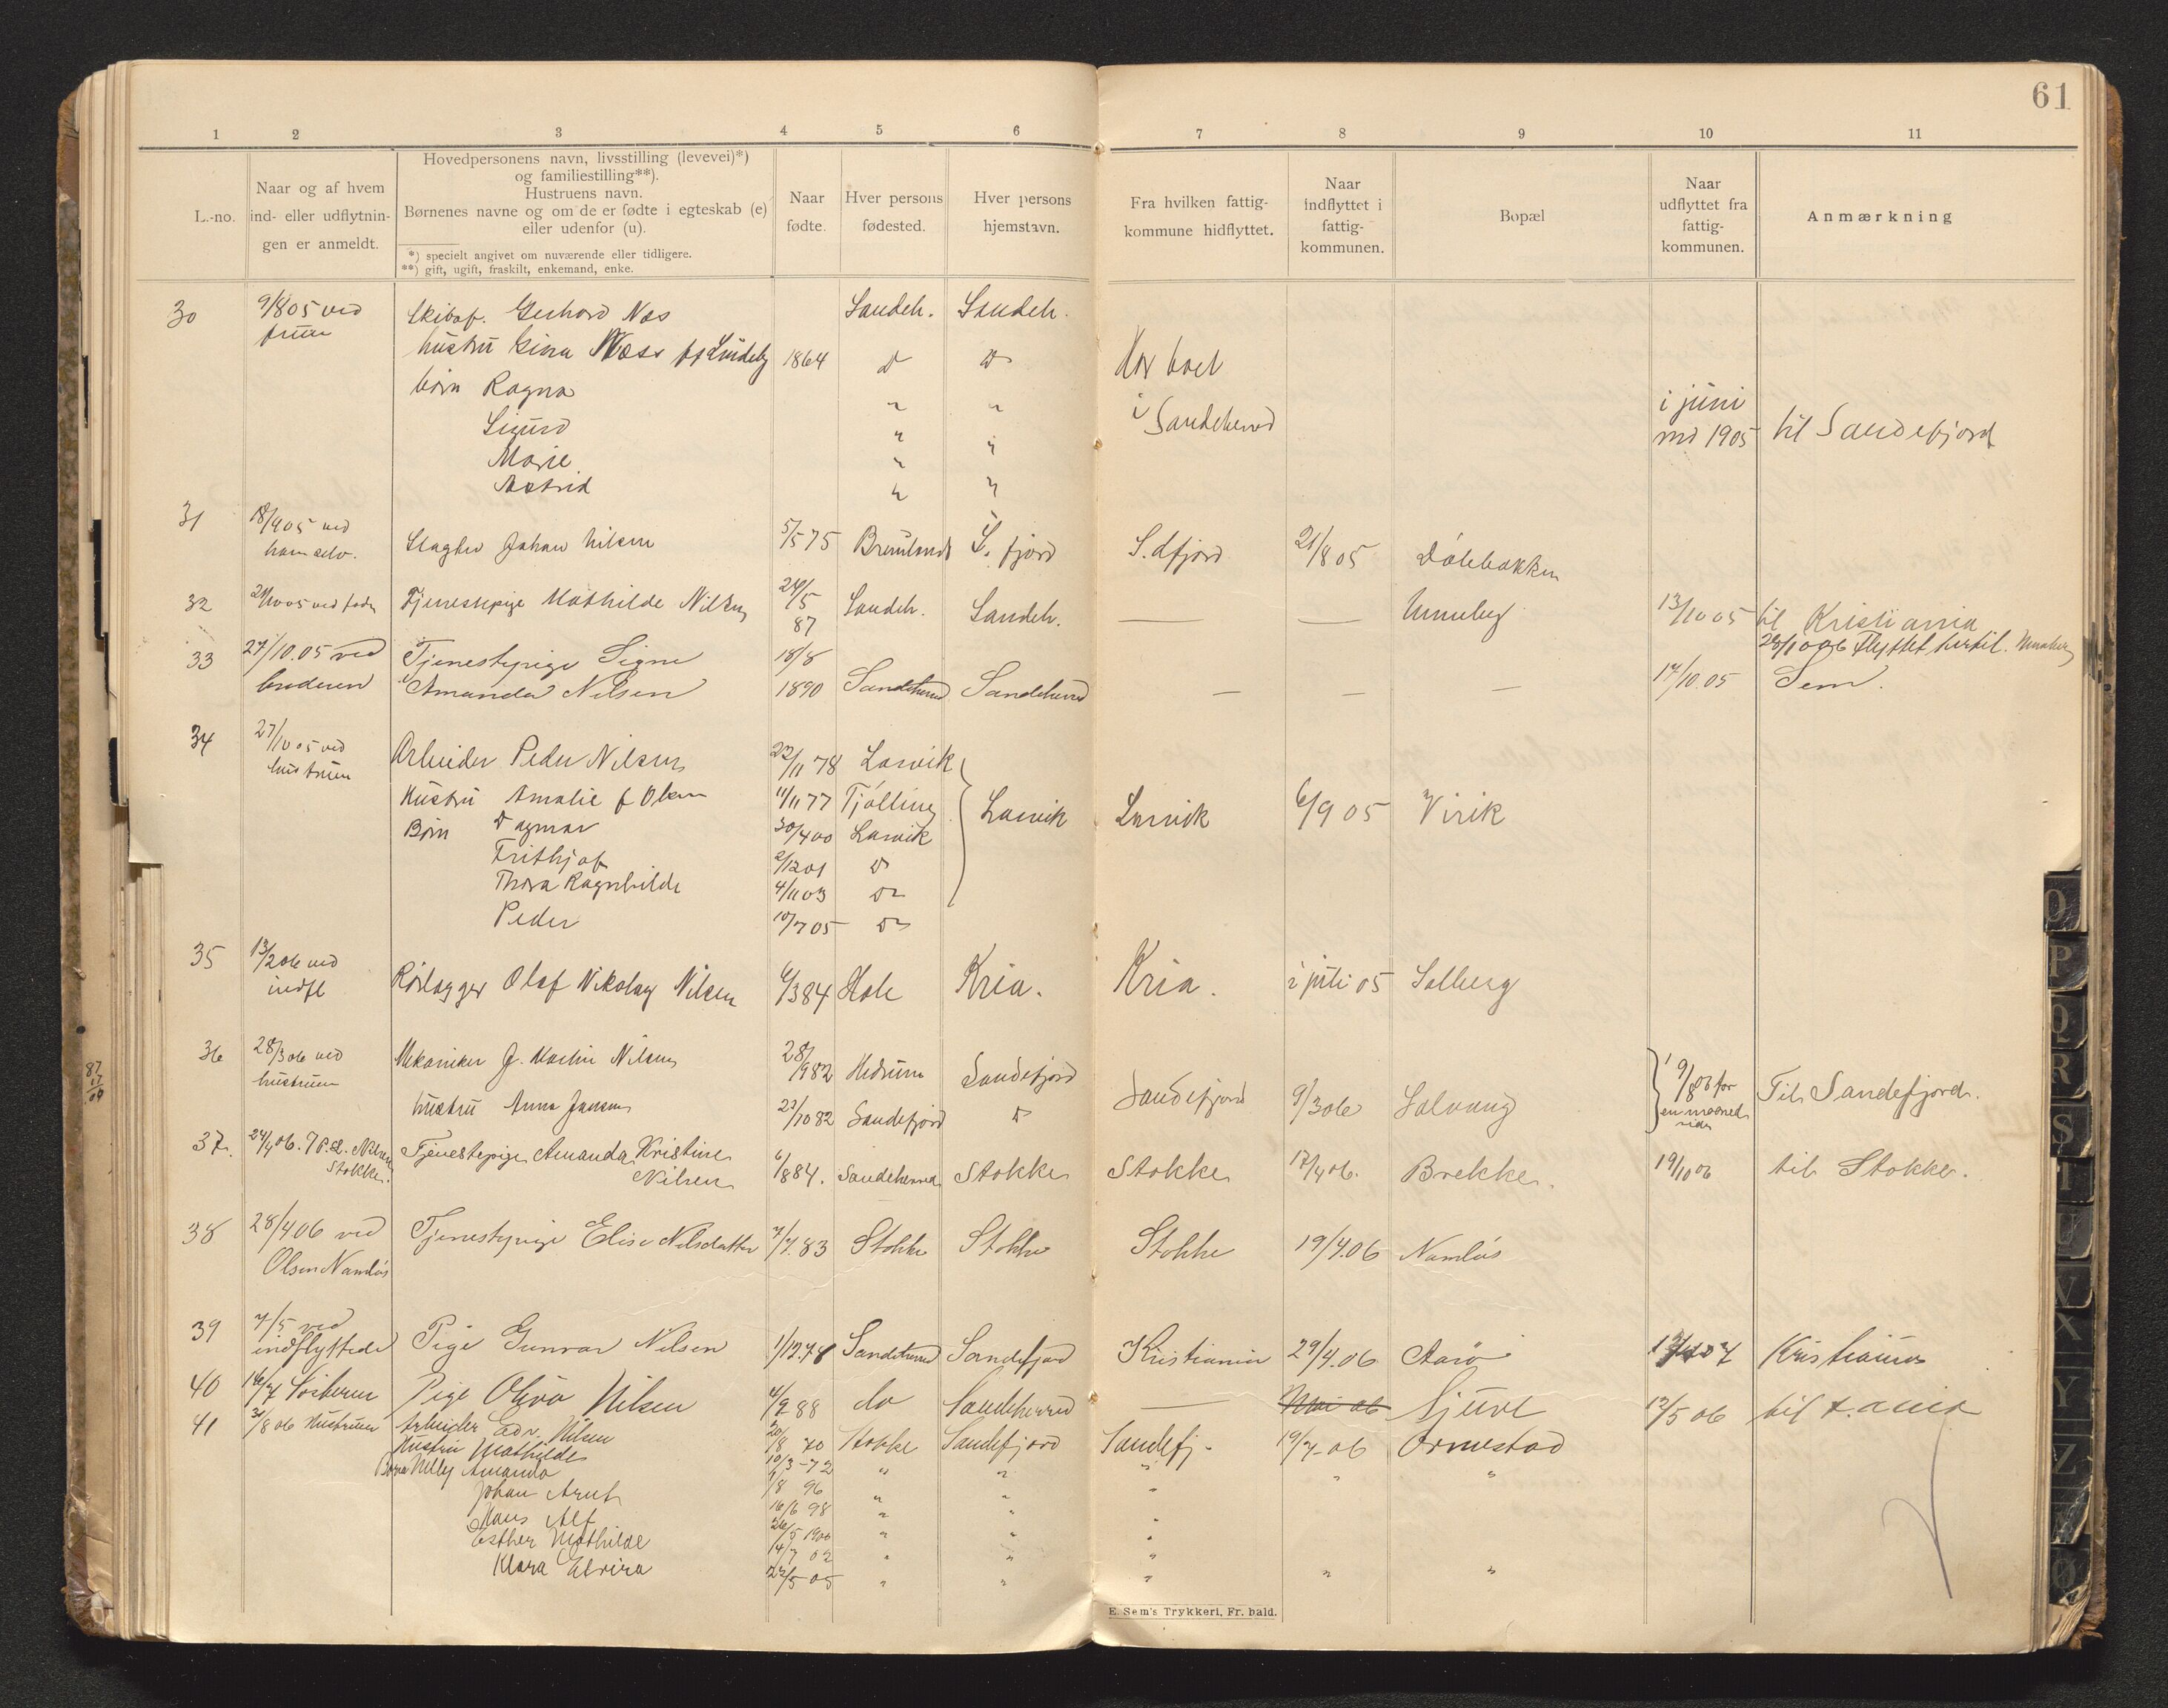 61
1 2 3 4 5 6 7 8 9 10 11
L.-no.
Naar og af hvem
ind- eller udflytnin-
gen er anmeldt.
Hovedpersonens navn, livsstilling (levevei)*)
og familiestilling**).
Hustruens navn.
Børnenes navne og om de er fødte i egteskab (e)
eller udenfor (u).
*) specielt angivet om nuværende eller tidligere.
**) gift, ugift, fraskilt, enkemand, enke.
Naar
fødte.
Hver persons
fødested.
Hver persons
hjemstavn.
Fra hvilken fattig-
kommune hidflyttet.
Naar
indflyttet i
fattig-
kommunen.
Bopæl
Naar
udflyttet fra
fattig-
kommunen.
Anmærkning
30 9/8 05 ved Gerhard Næs Sandeh. Sandeh.
fruen
hustru Gina Næss 1864 D D Har boet
børn Ragna " " i Sandeherred i juni
Sigurd " " md 1905 til Sandefjord
Marie " "
Astrid " "
31 18/9 05 ved
ham selv. Slagter Johan Nilsen 5/5 75 S. fjord S.dfjord 21/8 05 Dølebakken
32 ved fader Tjenestepige Mathilde Nilsen 24/5 87 Sandeh. Sandeh. — — Unneberg 13/10 05 til Kristiania
28/10 06 Flyttet hertil. Unneberg
33 27/10.05 ved Tjenestepige Signe 18/8
Amanda Nilsen 1890 Sandeherred Sandeherred — — — 14/10.05 Sem.
34 27/10 05 ved
hustruen
Arbeider Peder Nilsen 22/11 78 Larvik
Hustru Amalie f Olsen 11/11 77 Tjølling Larvik Larvik 6/9 05 Virik
Børn Dagmar 30/4 00 Larvik
Frithjof 2/12 01 D
Thora Ragnhilde 4/11 03 Do
Peder 10/7 05 Do
35 13/2 06 ved
indfl Rørlægger Olaf Nikolay Nilsen 6/3 84 Hole Kria. Kria. i juli 05 Solberg
36 28/3 06 ved
hustruen
Mekaniker J. Martin Nilsen 28/9 82 Hedrum Sandefjord
hustru Anna Jensen 23/10 82 Sandefjord D Sandefjord 9/3 06 Solvang for
en maaned
siden Til Sandefjord.
37. 24/4 06. Nilsen
Stokke. Tjenestepige Amanda Kristine
Nilsen 6/8 84. Sandeherred Stokke Stokke 17/4 06. Brekke. 19/10 06 til Stokke.
38 28/4 06 ved
Olsen Namløs Tjenestepige Elise Nilsdatter 7/7.83 Stokke Stokke Stokke 19/4.06 Namløs
39 7/5 ved
indflyttede Pige Gunvor Nilsen 1/12.78 Sandeherred Sandefjord Kristiania 29/4.06 Aarø Kristiania
40 16/7 Pige Olga Nilsen 4/9 88 do Sandeherred — Mai 06 Gjure 12/5 06 til
41 31/8 06 Hustruen Arbeider Edv. Nilsen 20/8 70 Stokke Sandefjord Sandefj. 19/7-06 Ormestad
Hustru Mathilde 10/3-72 " " "
Børn Nelly Amanda 9/8 96 " " " " "
Johan Arnt 16/6 98 " " "
Hans Alf 26/5 1900 " " "
Esther Mathilde 14/7 02 " " "
Klara Elvira 22/5 05 " " " " "
E. Sem's Trykkeri, Fr. hald.
O
P
Q
R
S
T
U
V
X
Y
Z
Æ
Ø